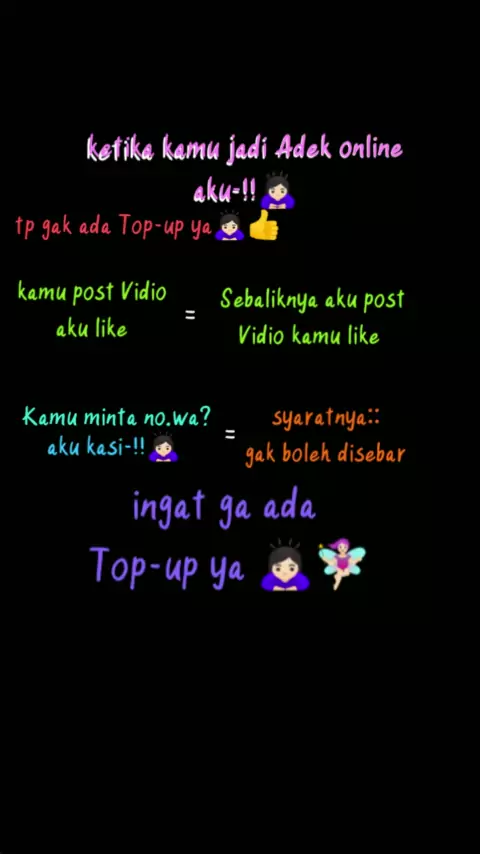 ketika kamu jadi Adek online
aku-!!🙇🏻‍♀️
tp gak ada Top-up ya🙇🏻‍♀️👍
kamu post Vidio
aku like
=
Sebaliknya aku post
Vidio kamu like
Kamu minta no.wa?
aku kasi-!!🙇🏻‍♀️
=
syaratnya::
gak boleh disebar
ingat ga ada
Top-up ya 🙇🏻‍♀️🧚🏻‍♀️